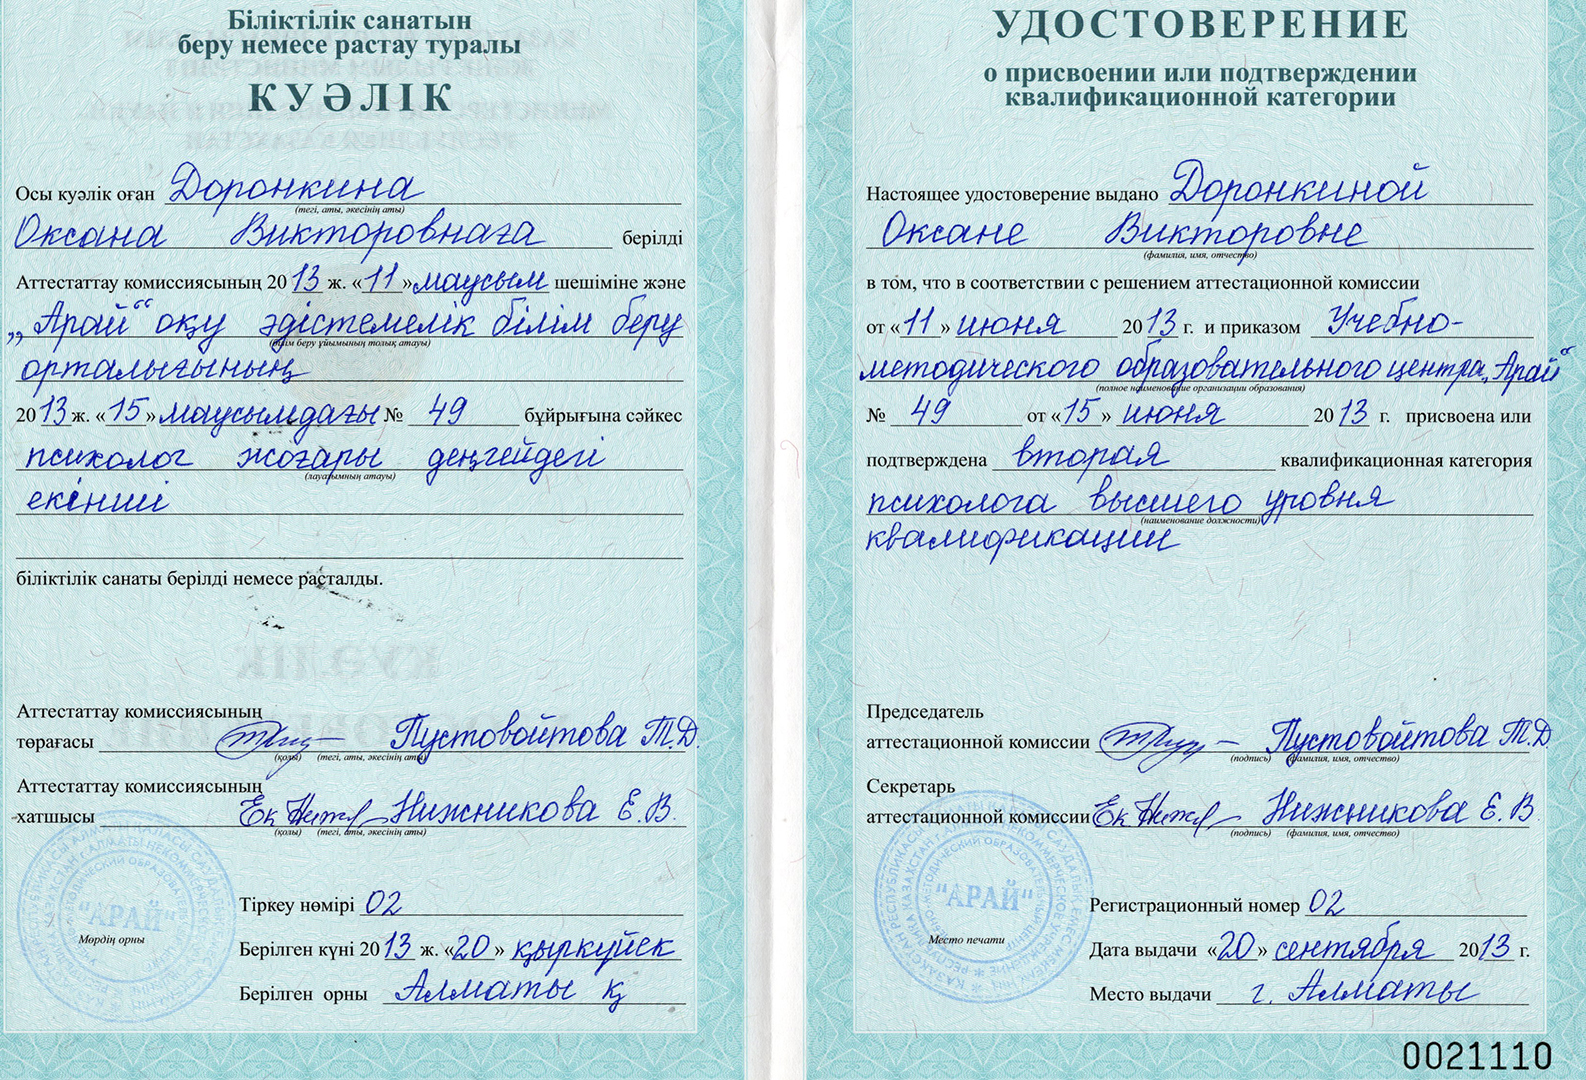 Біліктілік санатын
беру немесе растау туралы
КУӘЛІК
Осы куәлік оған Доронкина
(тегі, аты, әкесінің аты)
Оксана Викторовнаға берілді
Аттестаттау комиссиясының 2013 ж. «11» маусым шешіміне және
„Арай“ оқу әдістемелік білім беру
(білім беру ұйымының толық атауы)
орталығының
2013 ж. «15» маусымдағы № 49 бұйрығына сәйкес
психолог жоғары деңгейдегі
(лауазымның атауы)
екінші
біліктілік санаты берілді немесе расталды.
Аттестаттау комиссиясының
төрағасы Пустовойтова Т.Д.
(қолы) (тегі, аты, әкесінің аты)
Аттестаттау комиссиясының
хатшысы Нижникова Е.В.
(қолы) (тегі, аты, әкесінің аты)
"АРАЙ"
Мөрдің орны
Тіркеу нөмірі 02
Берілген күні 2013 ж. «20» қыркүйек
Берілген орны Алматы қ
УДОСТОВЕРЕНИЕ
о присвоении или подтверждении
квалификационной категории
Настоящее удостоверение выдано Доронкиной
Оксане Викторовне
(фамилия, имя, отчество)
в том, что в соответствии с решением аттестационной комиссии
от «11» июня 2013 г. и приказом Учебно-
методического образовательного центра „Арай“
(полное наименование организации образования)
№ 49 от «15» июня 2013 г. присвоена или
подтверждена вторая квалификационная категория
психолога высшего уровня
(наименование должности)
квалификации
Председатель
аттестационной комиссии Пустовойтова Т.Д.
(подпись) (фамилия, имя, отчество)
Секретарь
аттестационной комиссии Нижникова Е.В.
(подпись) (фамилия, имя, отчество)
"АРАЙ"
Место печати
Регистрационный номер 02
Дата выдачи «20» сентября 2013 г.
Место выдачи г. Алматы
0021110